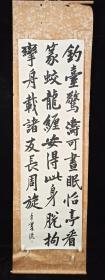 釣臺驚濤可晝眠怡亭看
篆蛟龍纏安得此身脫拘
攣舟載諸友長周旋